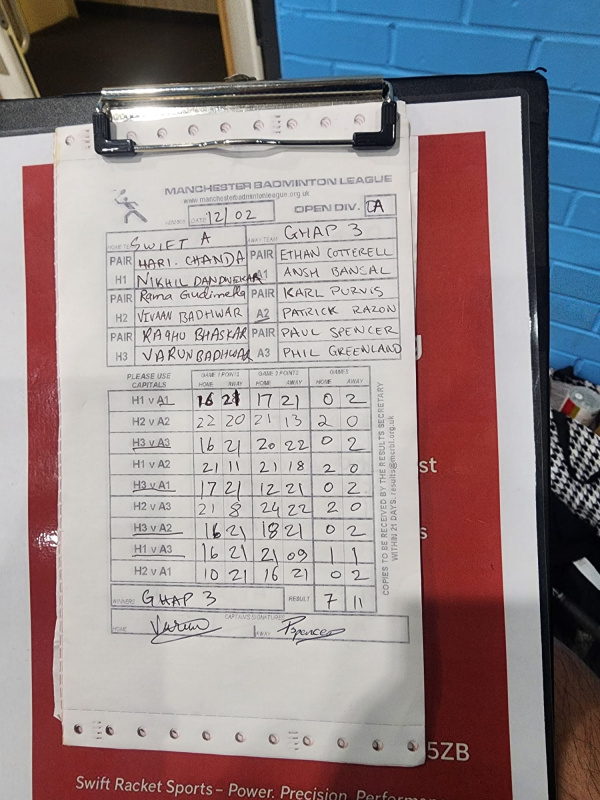 MANCHESTER BADMINTON LEAGUE
www.manchesterbadmintonleague.org.uk
DATE 12/02 OPEN DIV. A
HOME TEAM SWIFT A AWAY TEAM GHAP 3
PAIR HARI. CHANDA PAIR ETHAN COTTERELL
H1 NIKHIL DANDWEKAR A1 ANSH BANSAL
PAIR Rama Gudimella PAIR KARL PURVIS
H2 VIVAAN BADHWAR A2 PATRICK RAZON
PAIR RAGHU BHASKAR PAIR PAUL SPENCER
H3 VARUN BADHWAR A3 PHIL GREENLAND
PLEASE USE CAPITALS GAME 1 POINTS GAME 2 POINTS GAMES
HOME AWAY HOME AWAY HOME AWAY
H1 v A1 16 21 17 21 0 2
H2 v A2 22 20 21 13 2 0
H3 v A3 16 21 20 22 0 2
H1 v A2 21 11 21 18 2 0
H3 v A1 17 21 12 21 0 2
H2 v A3 21 8 24 22 2 0
H3 v A2 16 21 18 21 0 2
H1 v A3 16 21 21 09 1 1
H2 v A1 10 21 16 21 0 2
WINNERS GHAP 3 RESULT 7 11
CAPTAINS SIGNATURES
HOME Varun AWAY PSpencer
COPIES TO BE RECEIVED BY THE RESULTS SECRETARY
WITHIN 21 DAYS: results@mcrbl.org.uk
g
st
s
5ZB
Swift Racket Sports – Power. Precision. Performa